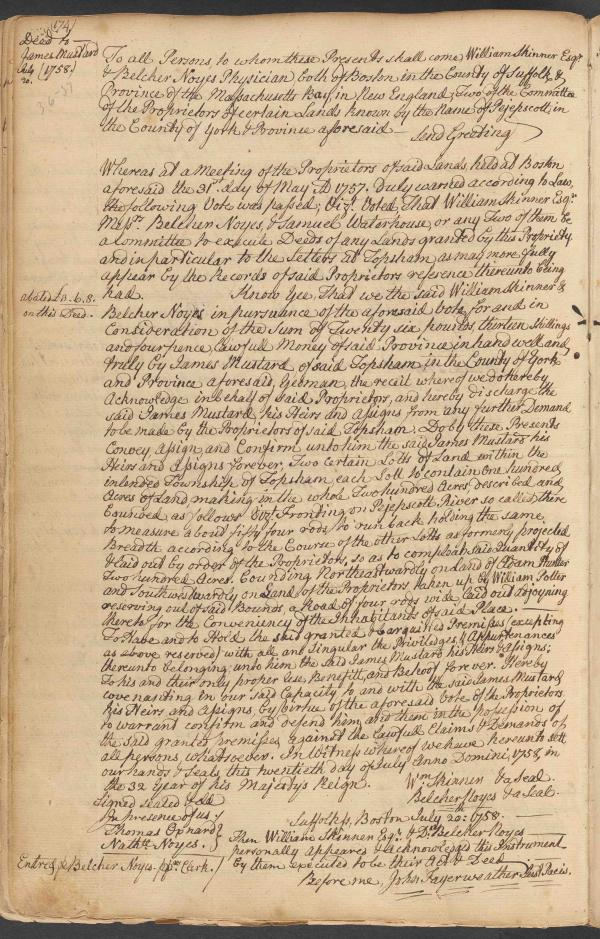 174
Deed to
James Mustard
July
20. 1758.
To all Persons, to whom these Presents shall come William Skinner Esqr.
& Belcher Noyes Physician both of Boston in the County of Suffolk &
Province of the Massachusetts Bay, in New England; Two of the Committee
of the Proprietors of certain Lands known by the Name of Pejepscott, in
the County of York & Province aforesaid — Send Greeting
Whereas at a Meeting of the Proprietors of said Lands, held at Boston
aforesaid the 31st. day of May AD 1757. Duly warned according to Law,
the following Vote was passed; Vizt. Voted, That William Skinner Esqr.
Belcher Noyes, & Samuel Waterhouse, or any Two of them be
a Committee to execute Deeds of any Lands granted by this Propriety,
and in particular to the Settlers at Topsham, as may more fully
appear by the Records of said Proprietors reference thereunto being
had. Know Yee, That we the said William Skinner &
abated on this Deed.
Belcher Noyes in pursuance of the aforesaid Vote, for and in
Consideration of the Sum of Twenty six pounds, thirteen shillings
and four pence, Lawfull Money of said Province in hand well and
truly by James Mustard of said Topsham, in the County of York
and Province aforesaid, Yeoman, the receit whereof we do hereby
Acknowledge in behalf of said Proprietors, and hereby discharge the
said James Mustard, his Heirs and Assigns from any further Demand
to be made by the Proprietors of said Topsham. Do by these Presents
Convey, Assign and Confirm unto him the said James Mustard his
Heirs and Assigns forever, Two certain Lotts of Land within the
intended Township of Topsham, each Lott to contain One hundred
Acres of Land making in the whole Two hundred Acres, described and
Bounded as follows Vizt. Fronting on Pejepscott River so called, there
to measure about fifty four rods, to run back holding the same
Breadth according to the Course of the other Lotts as formerly projected
& laid out by order of the Proprietors, so as to compleat said Quantity of
Two hundred Acres. Bounding Northeastwardly on Land of Adam Hunter
and Southwestwardly on Land of the Proprietors taken up by William Potter
reserving out of said Bounds, a Road of four rods wide laid out
thereto for the Conveniency of the Inhabitants of said Place.
To have and to Hold the said granted & bargained Premisses (excepting
as above reserved) with all and singular the Priviledges & Appurtenances
thereunto belonging, unto him the said James Mustard, his Heirs & Assigns;
To his and their only proper Use, Benefitt, and Behoof forever. Hereby
covenanting in our said Capacity to and with the said James Mustard
his Heirs and Assigns, by Virtue of the aforesaid Vote of the Proprietors
to warrant confirm and defend him, and them in the Possession of
the said granted premisses, against the Lawfull Claims & Demands of
all persons whatsoever. In Witness whereof we have hereunto sett
our hands & Seals, this twentieth day of July Anno Domini, 1758, in
the 32 year of his Majesty's Reign. Wm. Skinner & a Seal
Belcher Noyes & a Seal.
Signed sealed & dd
In presence of us
Thomas Oxnard
Nathll. Noyes.
Suffolk ss, Boston July 20th. 1758.
Then William Skinner Esqr. & Dr. Belcher Noyes
personally appeared & Acknowledged this Instrument
by them executed to be their Act & Deed
Entred Belcher Noyes. Clerk.
Before me, John Fayerweather Just Pacis.